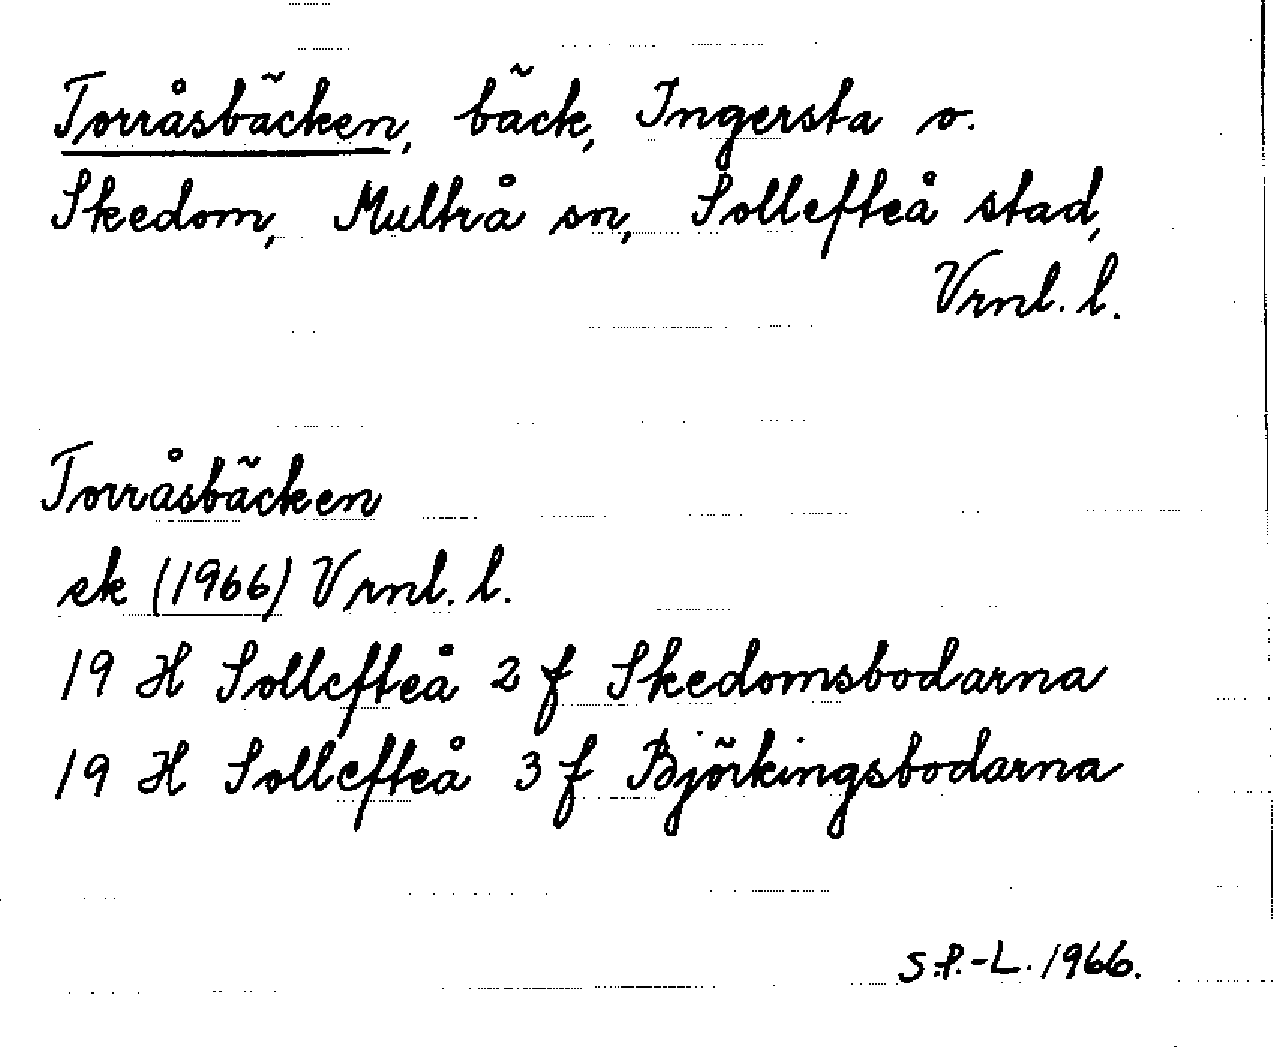 Torråsbäcken, bäck, Ingersta o.
Skedom, Multrå sn, Sollefteå stad,
Vrnl. l.
Torråsbäcken
ek (1966) Vrnl. l.
19 H Sollefteå 2 f Skedomsbodarna
19 H Sollefteå 3 f Björkingsbodarna
S.P.-L. 1966.